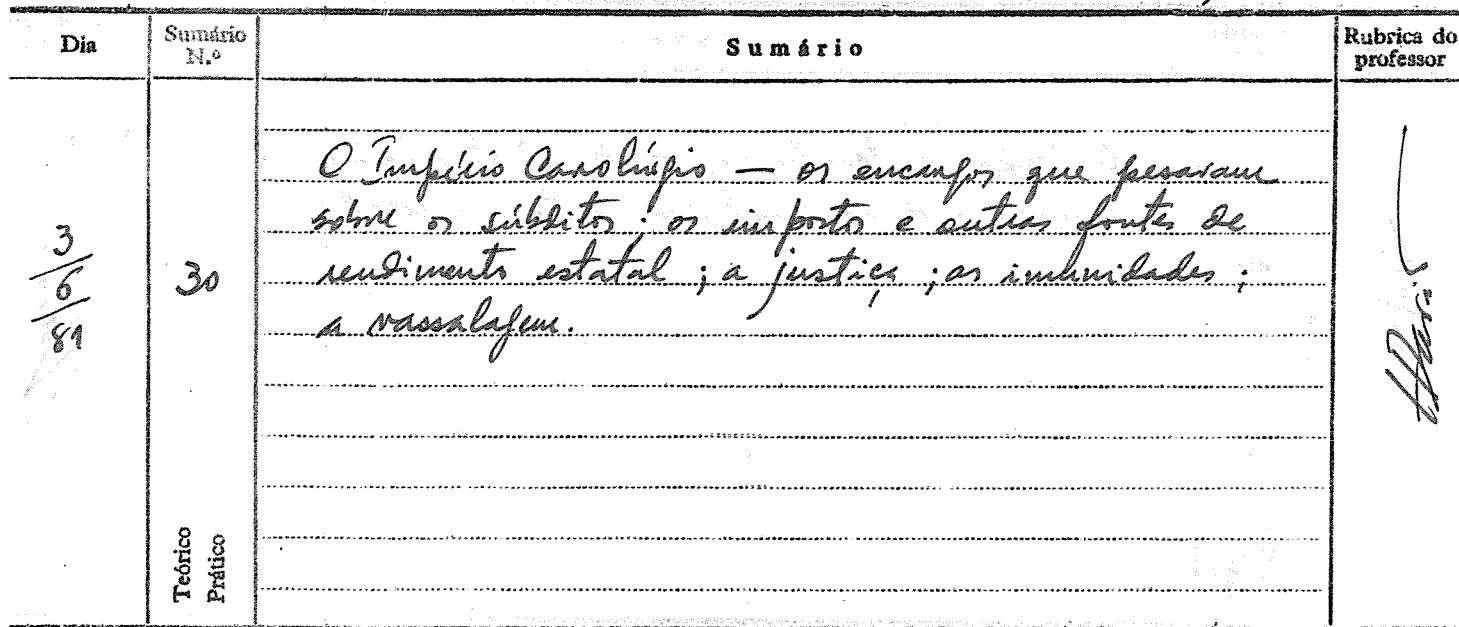 Dia
Sumário N.º
Sumário
Rubrica do professor
3/6/81
30
O Império Carolíngio — os encargos que pesavam
sobre os súbditos; os impostos e outras fontes de
rendimento estatal; a justiça; as imunidades;
a vassalagem.
Teórico
Prático